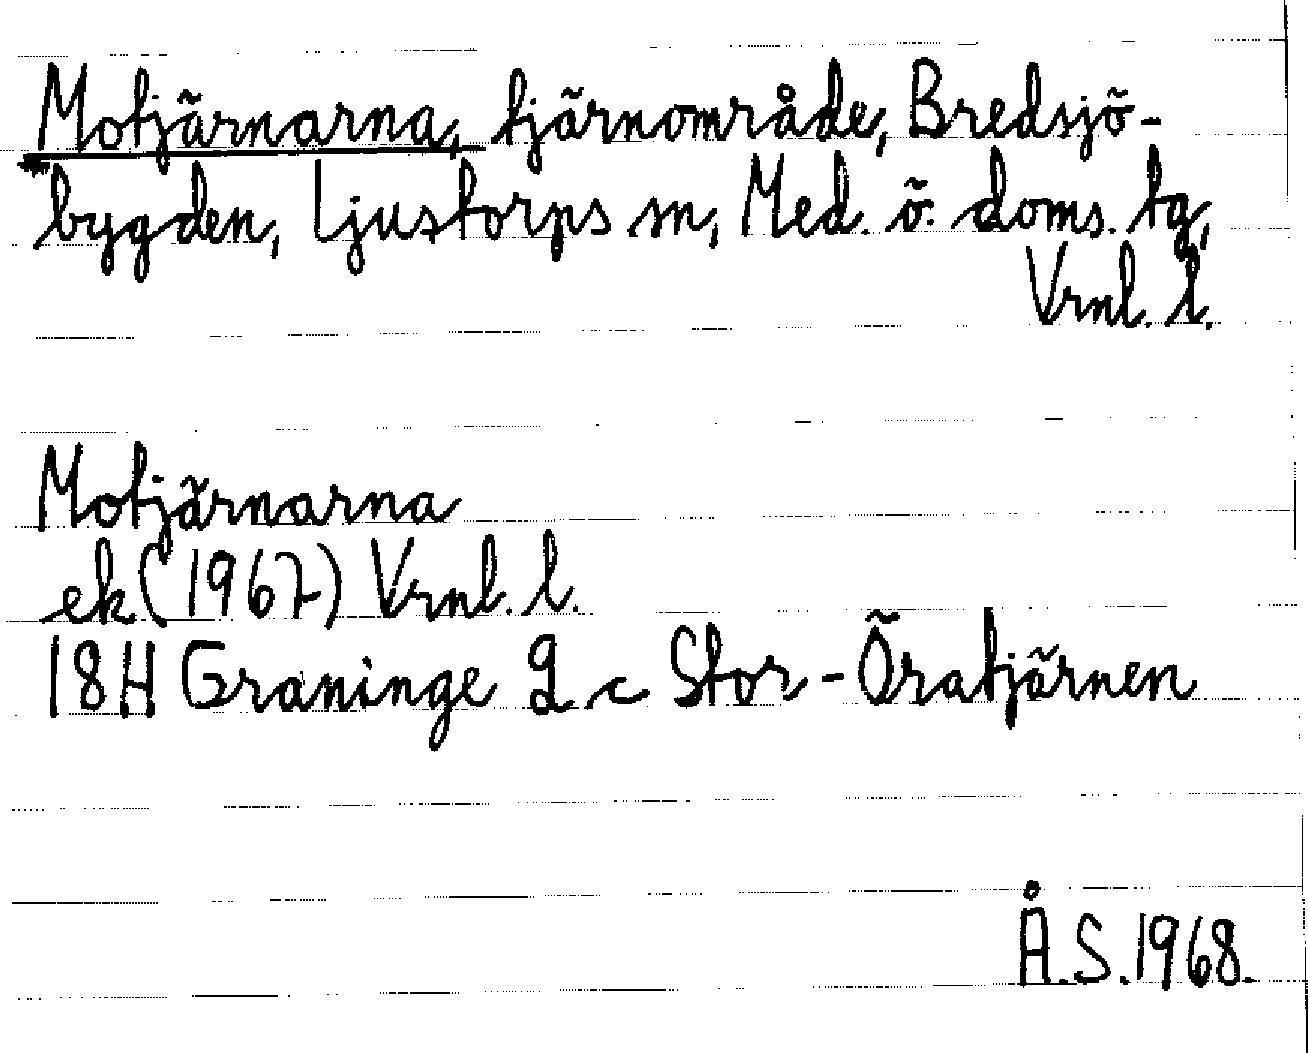 Motjärnarna, tjärnområde, Bredsjö-
bygden, Ljustorps sn, Med. ö. doms. tg,
Vrnl. l.
Motjärnarna
ek (1967) Vrnl. l.
18H Graninge 9 c Stor-Öratjärnen
Å.S.1968.